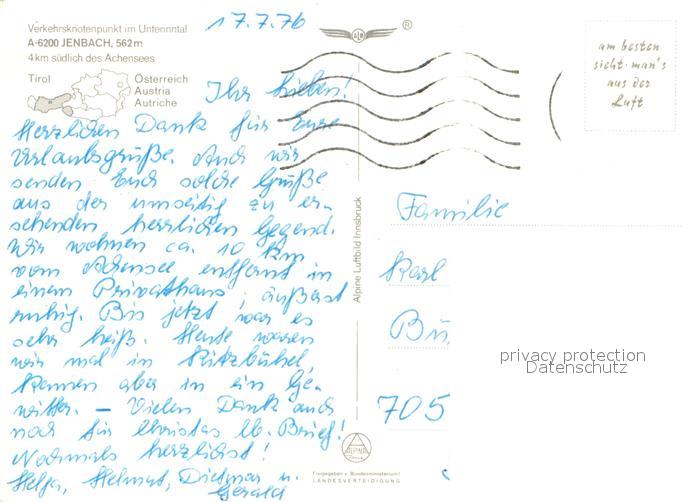 17.7.76
Verkehrsknotenpunkt im Unterinntal
A-6200 JENBACH, 562m
4 km südlich des Achensees
Tirol
Österreich
Austria
Autriche
®
am besten
sieht-man's
aus der
Luft
Ihr Lieben!
Herzlichen Dank für Eure
Urlaubsgrüße. Auch wir
senden Euch solche Grüße
aus der umseitig zu er-
sehenden herrlichen Gegend.
Wir wohnen ca. 10 km
vom Achensee entfernt in
einem Privathaus, äußerst
ruhig. Bis jetzt war es
sehr heiß. Heute waren
wir mal in Kitzbühel,
kamen aber in ein Ge-
witter. – Vielen Dank auch
noch für Christas lb. Brief!
Nochmals herzlichst!
Helga, Helmut, Dietmar u.
Gerald
Alpine Luftbild Innsbruck
ALPINE
Freigegeben v. Bundesministerium f.
LANDESVERTEIDIGUNG
Familie
Karl
Bü
705
privacy protection
Datenschutz